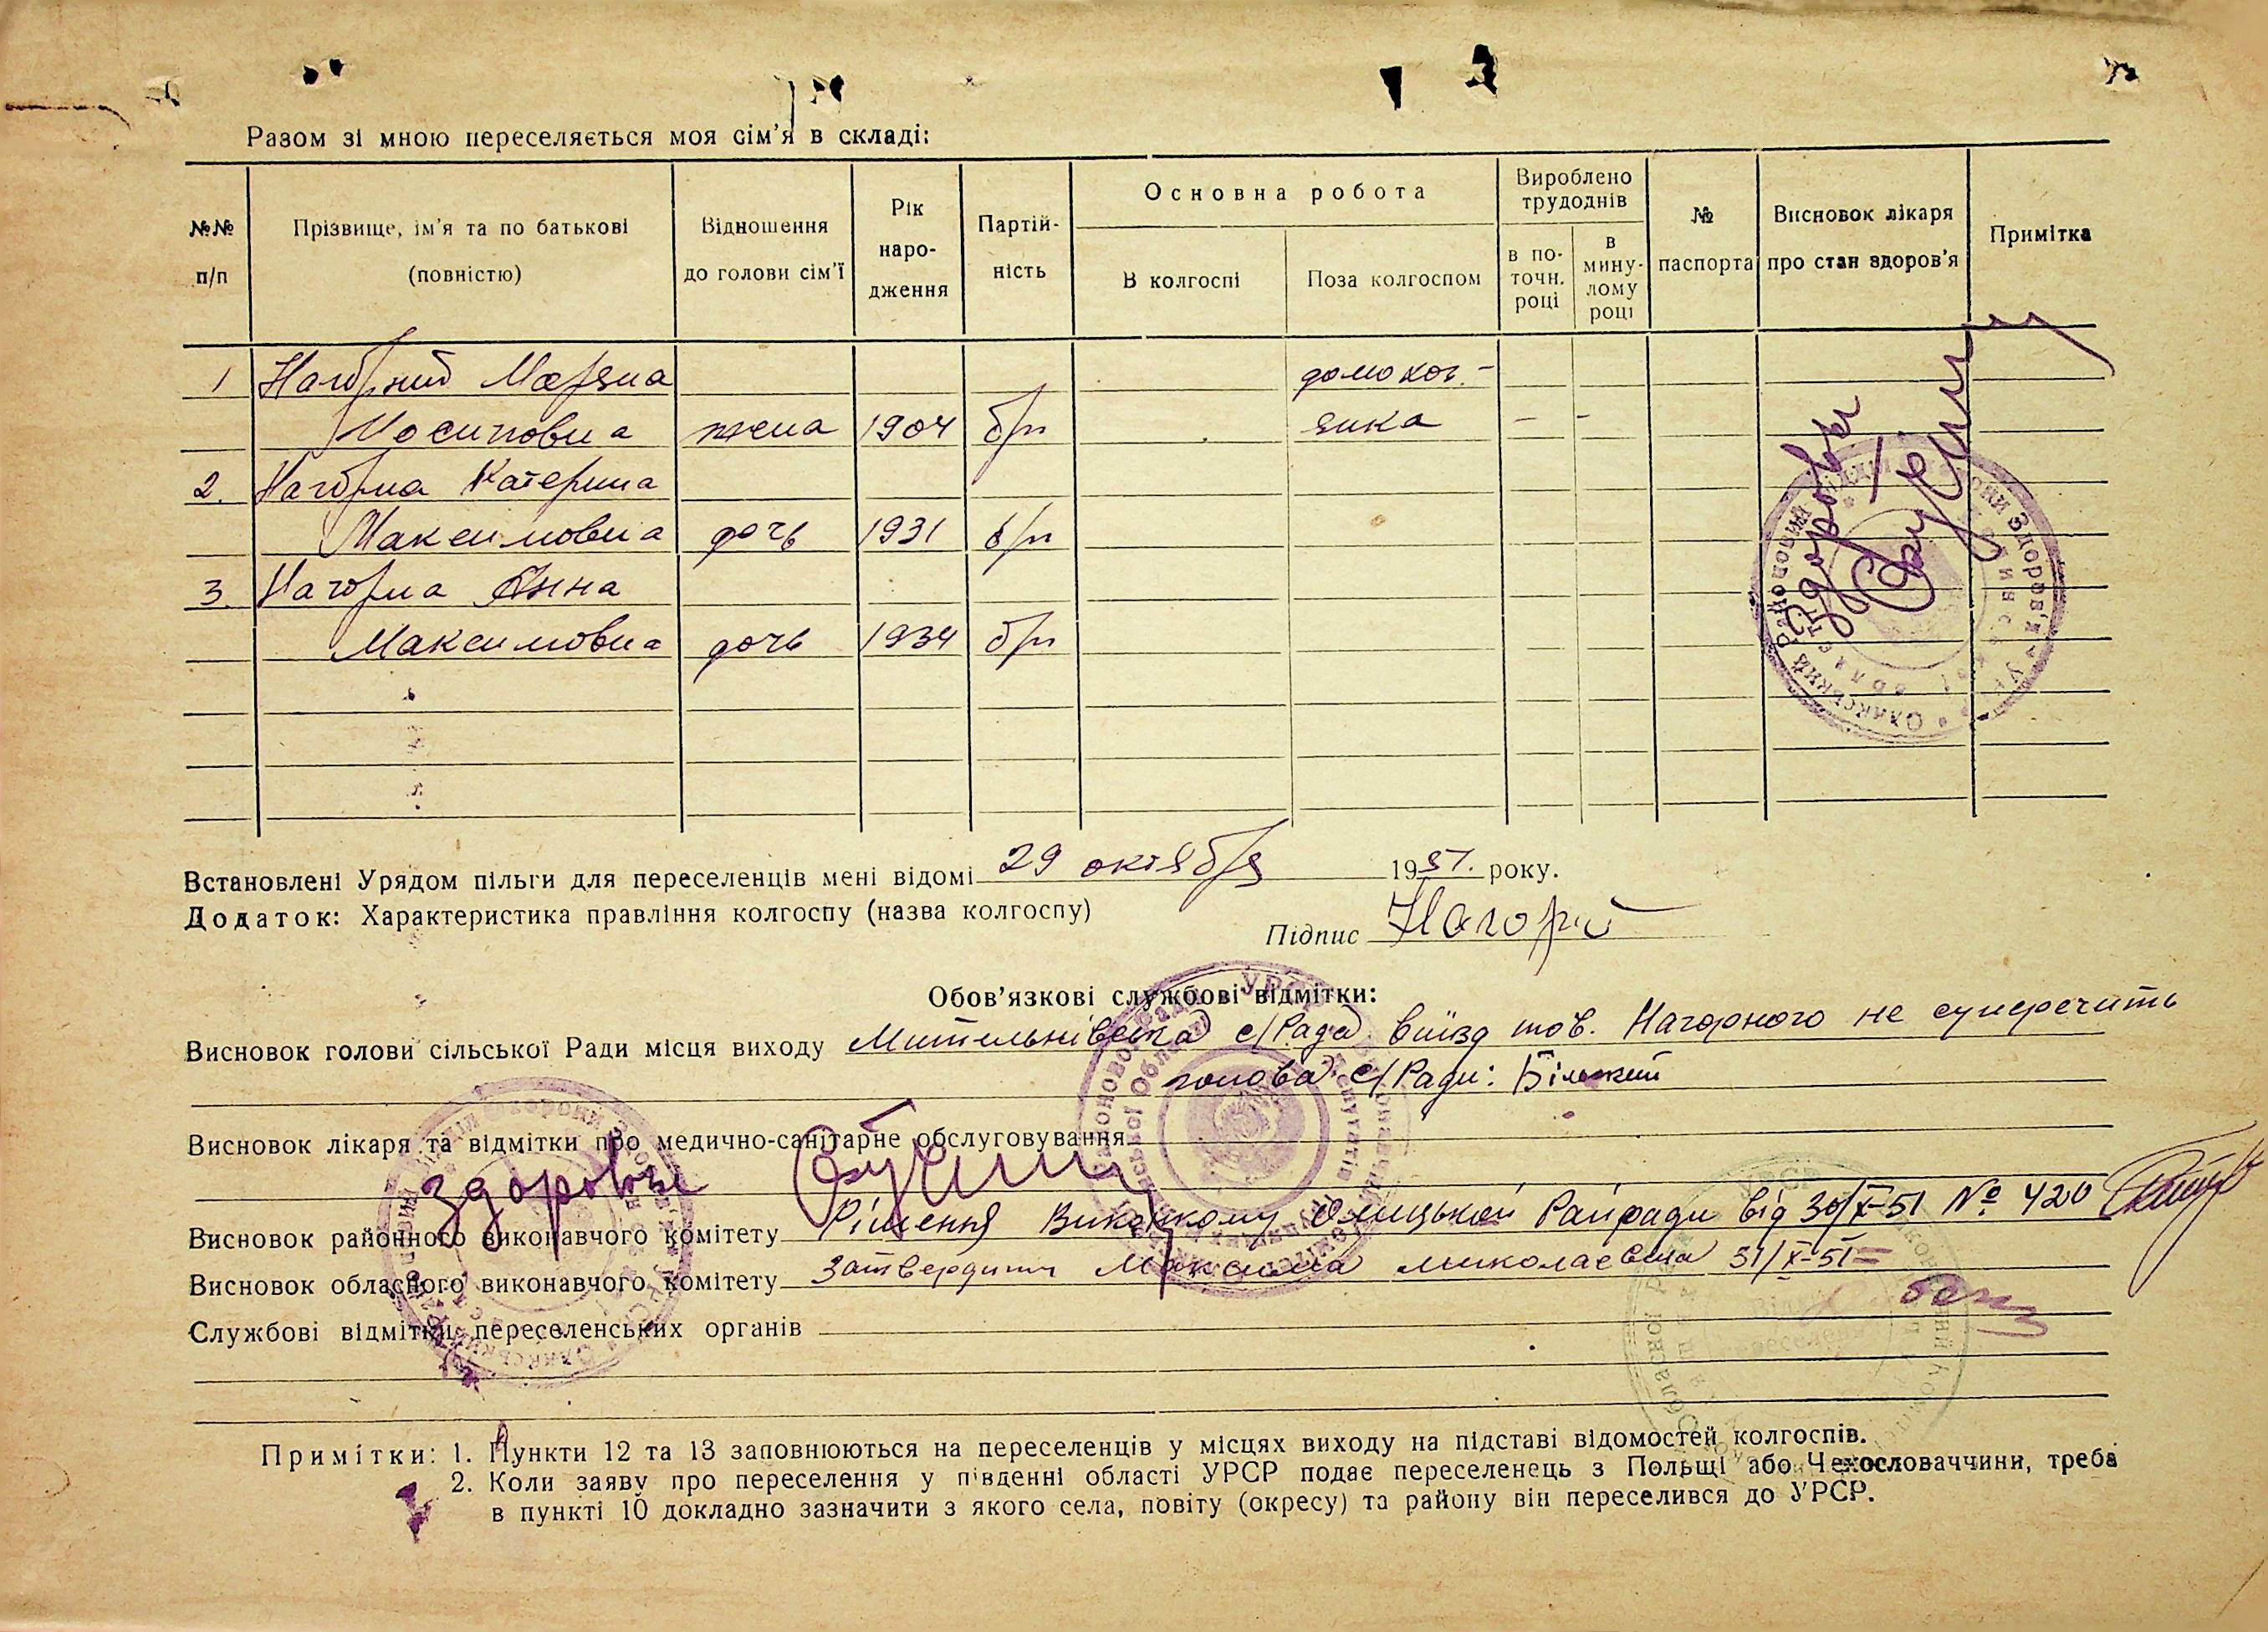 Разом зі мною переселяється моя сім'я в складі:
№№ п/п
Прізвище, ім'я та по батькові (повністю)
Відношення до голови сім'ї
Рік народження
Партійність
Основна робота
В колгоспі
Поза колгоспом
Вироблено трудоднів
в поточн. році
в минулому році
№ паспорта
Висновок лікаря про стан здоров'я
Примітка
1 Нагорний домог.-
Иосиповна жена 1904 б/п зика - -
2. Нагорна Катерина
Максимовна дочь 1931 б/п
3. Нагорна Анна
Максимовна дочь 1934 б/п
Здоровы
Встановлені Урядом пільги для переселенців мені відомі 29 октября 1951. року.
Додаток: Характеристика правління колгоспу (назва колгоспу)
Підпис Нагорний
Обов'язкові службові відмітки:
Висновок голови сільської Ради місця виходу Мительнівська с/Рада виїзд тов. Нагорного не суперечить
голова с/Ради:
Висновок лікаря та відмітки про медично-санітарне обслуговування
здоровы
Висновок районного виконавчого комітету Рішення Виконкому Олицької Райради від 30/X-51 № 420
Висновок обласного виконавчого комітету Затвердити Максима Миколаевича 31/X-51
Службові відмітки переселенських органів
Примітки: 1. Пункти 12 та 13 заповнюються на переселенців у місцях виходу на підставі відомостей колгоспів.
2. Коли заяву про переселення у південні області УРСР подає переселенець з Польщі або Чехословаччини, треба
в пункті 10 докладно зазначити з якого села, повіту (окресу) та району він переселився до УРСР.